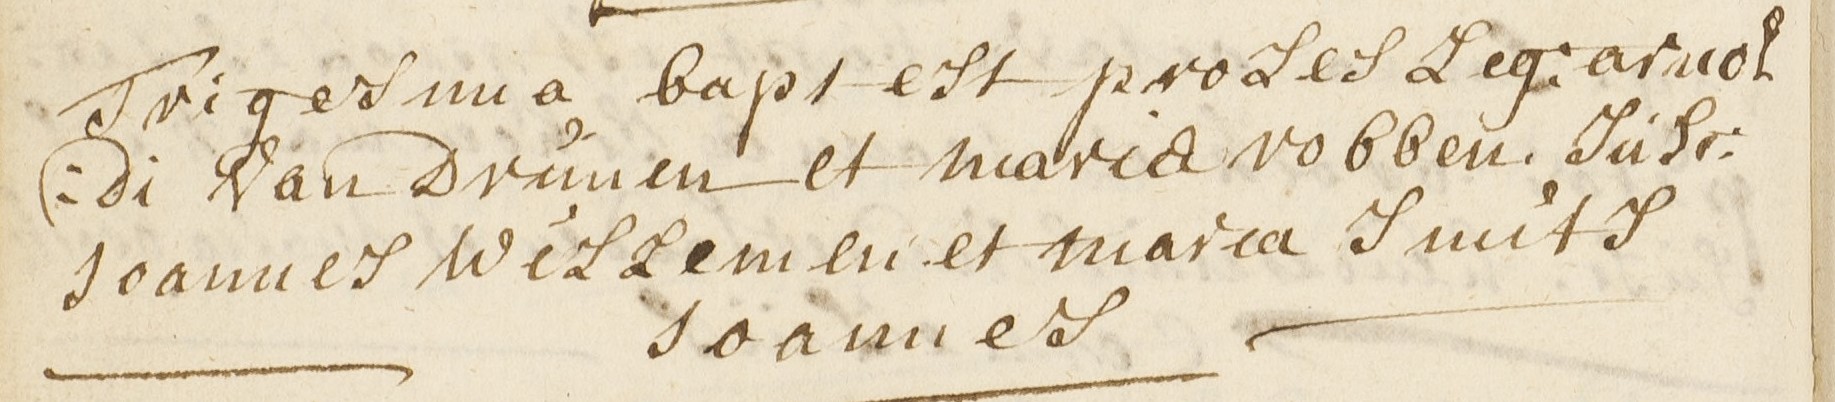 Trigesima bapt est proles leg: arnol
:di Van Drunen et maria robben. Sus:
Joannes Willemen et maria Smits
Joannes